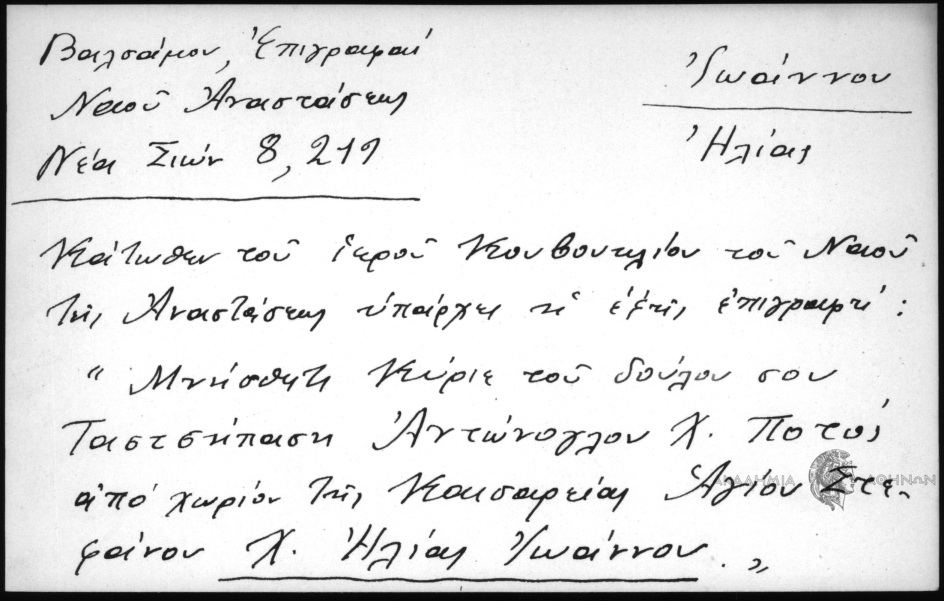 Βαλσάμου, Ἐπιγραφαί
Ναοῦ Ἀναστάσεως
Νέα Σιών 8, 219
Ἰωάννου
Ἠλίας
Κάτωθεν τοῦ ἱεροῦ Κουβουκλίου τοῦ Ναοῦ
τῆς Ἀναστάσεως ὑπάρχει ἡ ἑξῆς ἐπιγραφή :
“ Μνήσθητι Κύριε τοῦ δούλου σου
Ταστσήπαση Ἀντώνογλου Χ. Ποτός
ἀπό χωρίον τῆς Καισαρείας Ἁγίου Στε-
φάνου Χ. Ἠλίας Ἰωάννου. „
ΑΚΑΔΗΜΙΑ ΑΘΗΝΩΝ